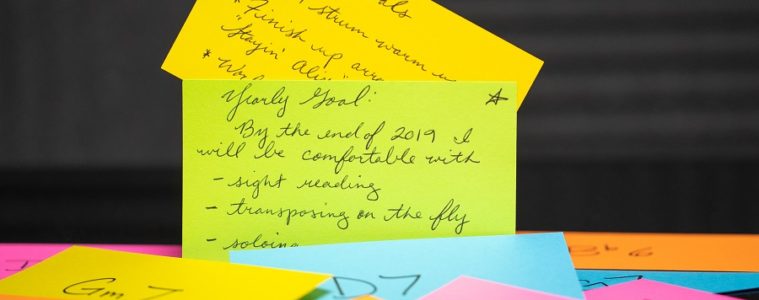 als
* strum warm u
* Finish up arra
"Stayin' Aliv
*
Yearly Goal: ☆
By the end of 2019 I
will be comfortable with
- sight reading
- transposing on the fly
- soloing
Bb 6
Gm 7
D7
7